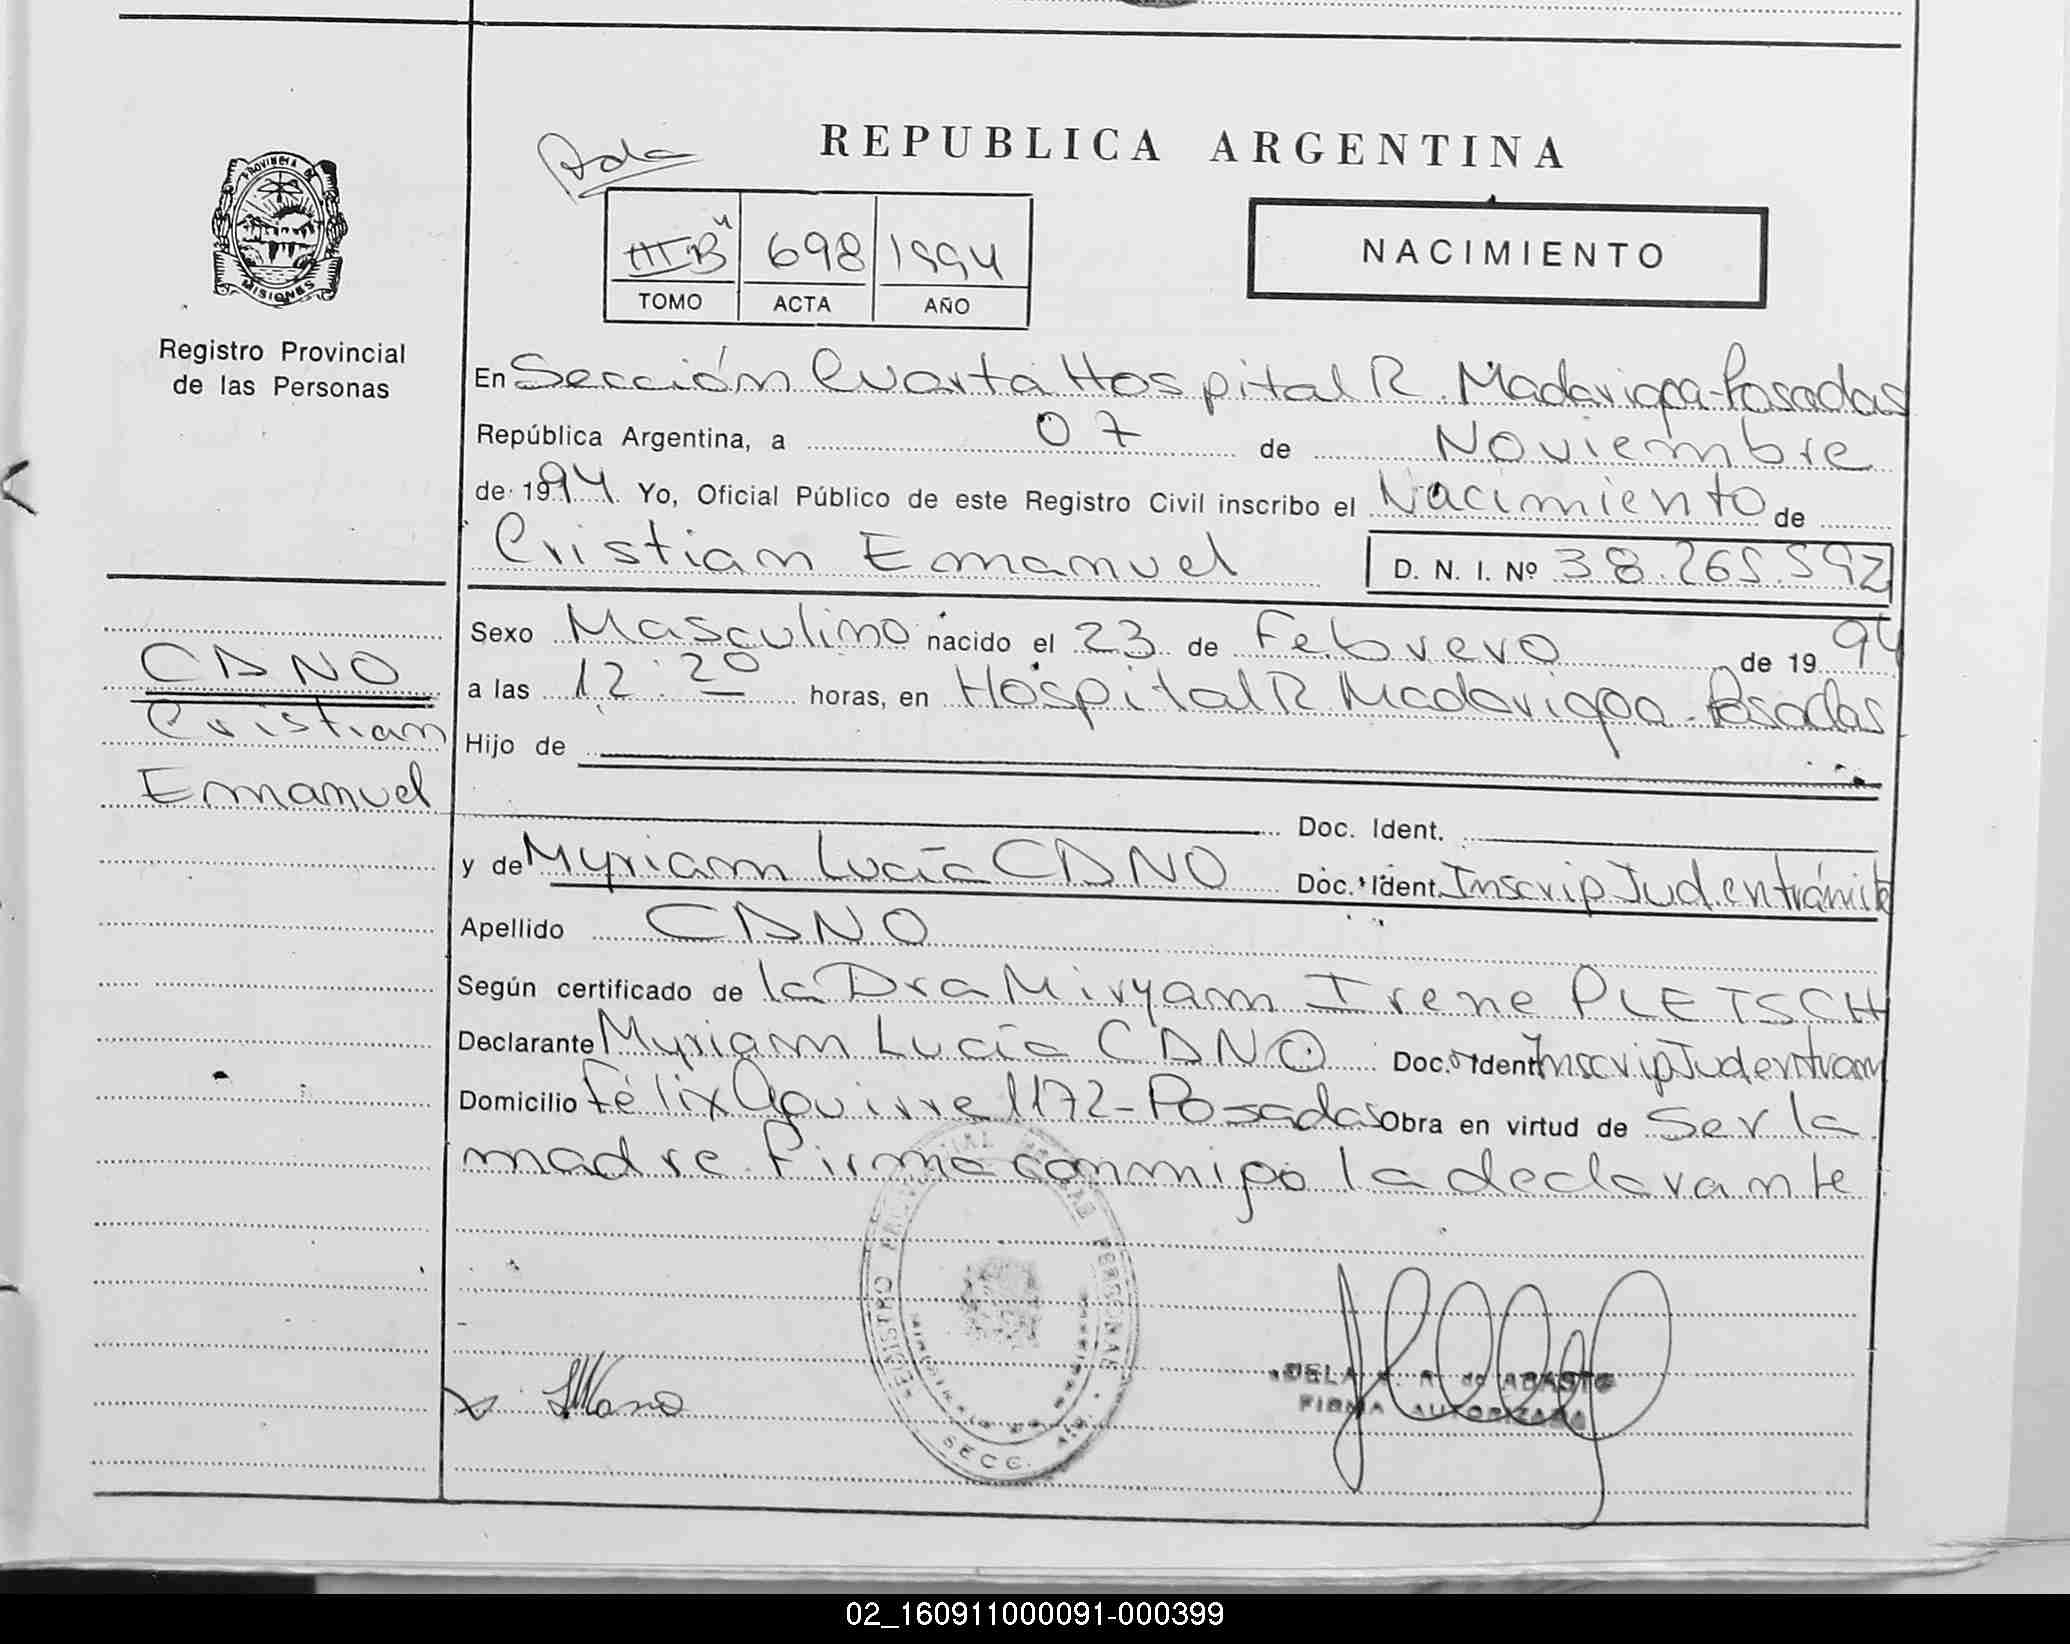 REPUBLICA ARGENTINA
PROVINCIA DE
MISIONES
Registro Provincial
de las Personas
IIIB 698 1994
TOMO ACTA AÑO
NACIMIENTO
En Sección Cuarta Hospital R. Madariaga-Posadas
República Argentina, a 07 de Noviembre
de 1994 Yo, Oficial Público de este Registro Civil inscribo el Nacimiento de
Cristian Emanuel D. N. I. Nº 38.265.592
Sexo Masculino nacido el 23 de Febrero de 1994
a las 12:20 horas, en Hospital R Madariaga-Posadas
Hijo de
Doc. Ident.
y de Myriam Lucía CANO Doc. Ident. Inscrip Jud. en trámite
Apellido CANO
Según certificado de la Dra Miryam Irene PLETSCH
Declarante Myriam Lucía CANO Doc. Ident Inscrip Jud en tram
Domicilio Félix Aguirre 1172-Posadas Obra en virtud de Ser la
madre. Firma conmigo la declarante
CANO
Cristian
Emanuel
REGISTRO PERSONAS
SECC.
de ABASTO
FIRMA AUTORIZADA
02_160911000091-000399